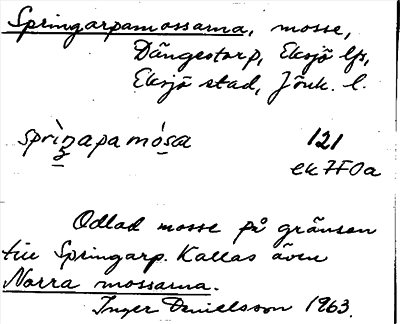 Springarpamossarna, mosse,
Dängestorp, Eksjö lfs,
Eksjö stad, Jönk. l.
sprìŋapamósa 121
ek7F0a
Odlad mosse på gränsen
till Springarp. Kallas även
Norra mossarna.
Inger Danielsson 1963.